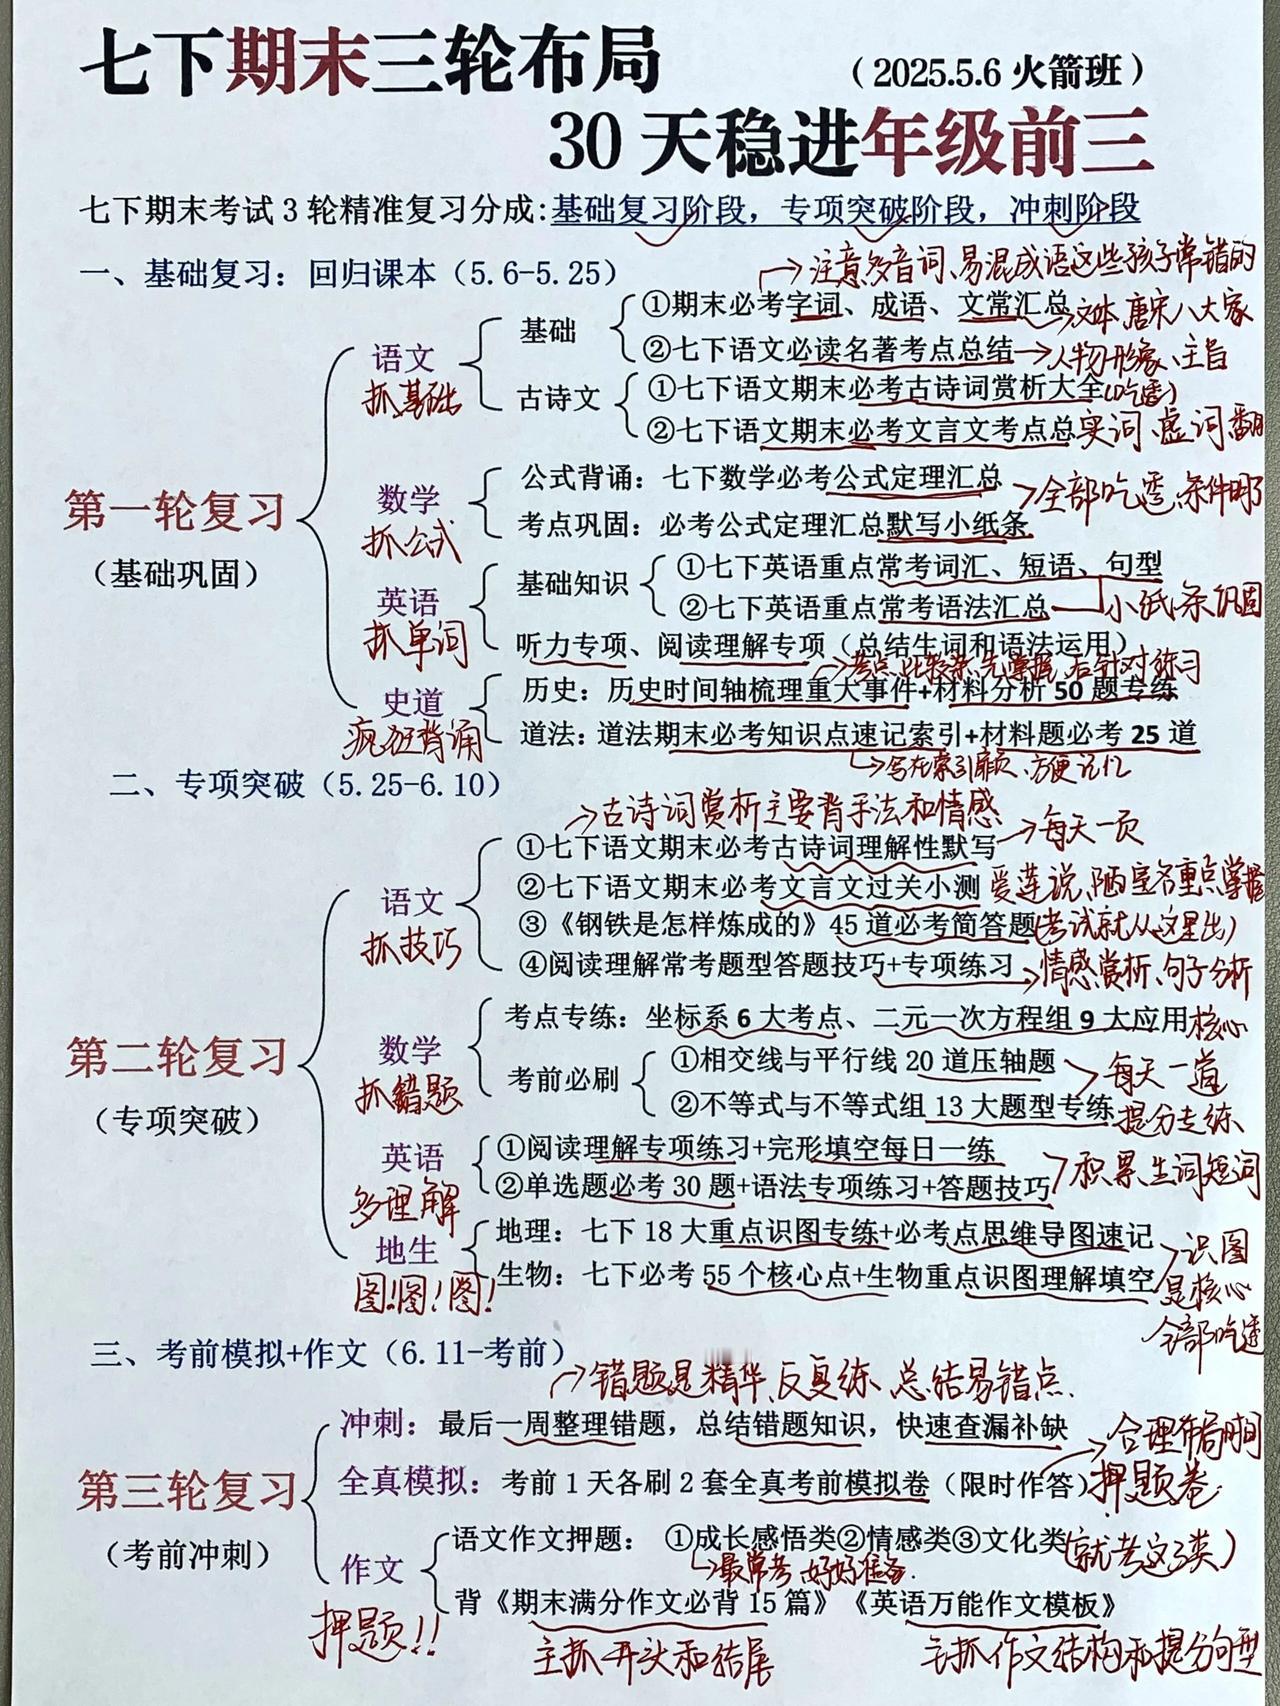 七下期末三轮布局
（2025.5.6 火箭班）
30 天稳进年级前三
七下期末考试 3 轮精准复习分成:基础复习阶段，专项突破阶段，冲刺阶段
一、基础复习：回归课本（5.6-5.25）
注意多音词、易混成语这些孩子常错的
第一轮复习
（基础巩固）
语文
抓基础
基础
①期末必考字词、成语、文常汇总
文体、唐宋八大家
②七下语文必读名著考点总结
人物形象、主旨
古诗文
①七下语文期末必考古诗词赏析大全
(吃透)
②七下语文期末必考文言文考点总
实词、虚词翻
数学
抓公式
公式背诵：七下数学必考公式定理汇总
考点巩固：必考公式定理汇总默写小纸条
全部吃透、条件
英语
抓单词
基础知识
①七下英语重点常考词汇、短语、句型
②七下英语重点常考语法汇总
小纸条巩固
听力专项、阅读理解专项（总结生词和语法运用）
考点比较杂，先掌握，后针对练习
史道
疯狂背诵
历史：历史时间轴梳理重大事件+材料分析 50 题专练
道法：道法期末必考知识点速记索引+材料题必考 25 道
写在索引扉页、方便记忆
二、专项突破（5.25-6.10）
古诗词赏析主要背手法和情感
第二轮复习
（专项突破）
语文
抓技巧
①七下语文期末必考古诗词理解性默写
每天一页
②七下语文期末必考文言文过关小测
爱莲说、陋室铭重点掌握
③《钢铁是怎样炼成的》45 道必考简答题
(考试就从这里出)
④阅读理解常考题型答题技巧+专项练习
情感赏析、句子分析
数学
抓错题
考点专练：坐标系 6 大考点、二元一次方程组 9 大应用
核心
考前必刷
①相交线与平行线 20 道压轴题
②不等式与不等式组 13 大题型专练
每天一道
提分专练
英语
多理解
①阅读理解专项练习+完形填空每日一练
②单选题必考 30 题+语法专项练习+答题技巧
积累生词短词
地生
图!图!图!
地理：七下 18 大重点识图专练+必考点思维导图速记
生物：七下必考 55 个核心点+生物重点识图理解填空
识图
是核心
全部吃透
三、考前模拟+作文（6.11-考前）
错题是精华、反复练、总结易错点.
第三轮复习
（考前冲刺）
冲刺：最后一周整理错题，总结错题知识，快速查漏补缺
合理布局时间
全真模拟：考前 1 天各刷 2 套全真考前模拟卷（限时作答）
押题卷
作文
押题!!
语文作文押题： ①成长感悟类②情感类③文化类
(就考这3类)
最常考、好好准备.
背《期末满分作文必背 15 篇》《英语万能作文模板》
主抓开头和结尾
主抓作文结构和提分句型